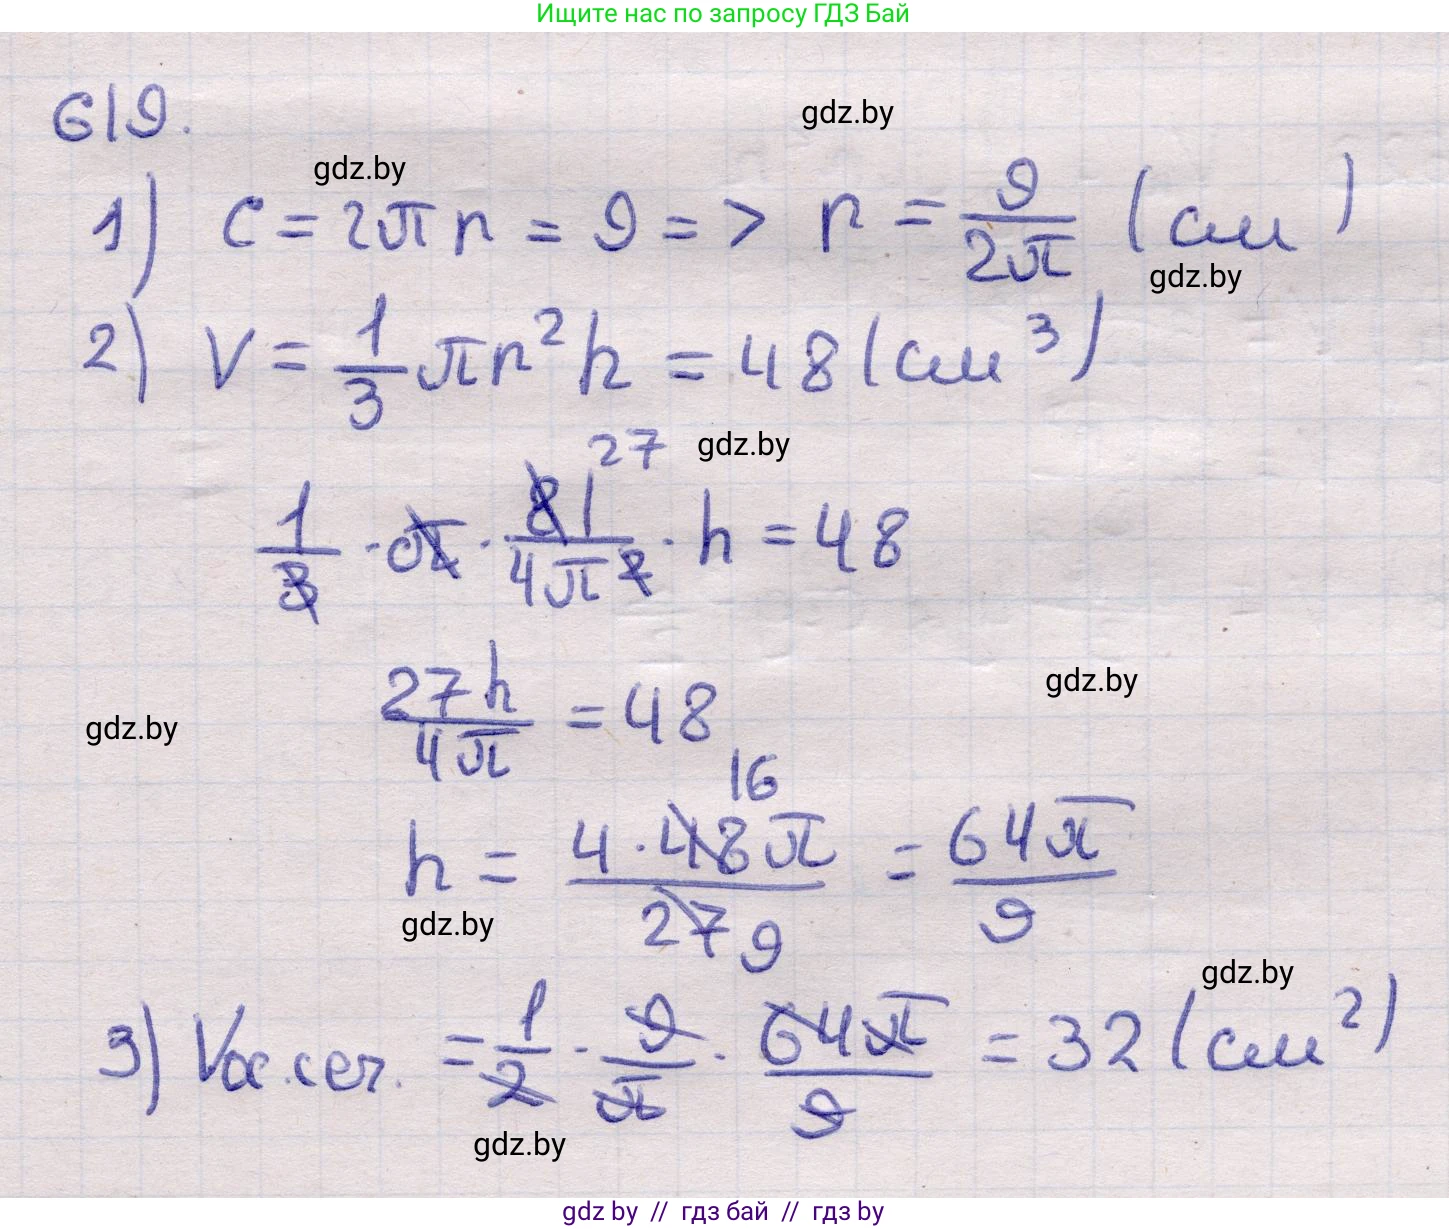 Ищите нас по запросу ГДЗ Бай
619.
gdz.by
gdz.by
1) C = 2πr = 9 => r = 9/2π (см)
gdz.by
2) V = 1/3 πr²h = 48 (см³)
gdz.by
1/3 · π · 81/4π² · h = 48
27
27h/4π = 48
gdz.by
gdz.by
h = 4·48π/27 = 64π/9
16
9
gdz.by
gdz.by
3) Vос.сеч. = 1/2 · 9/π · 64π/9 = 32 (см²)
gdz.by
gdz by // гдз бай // гдз by